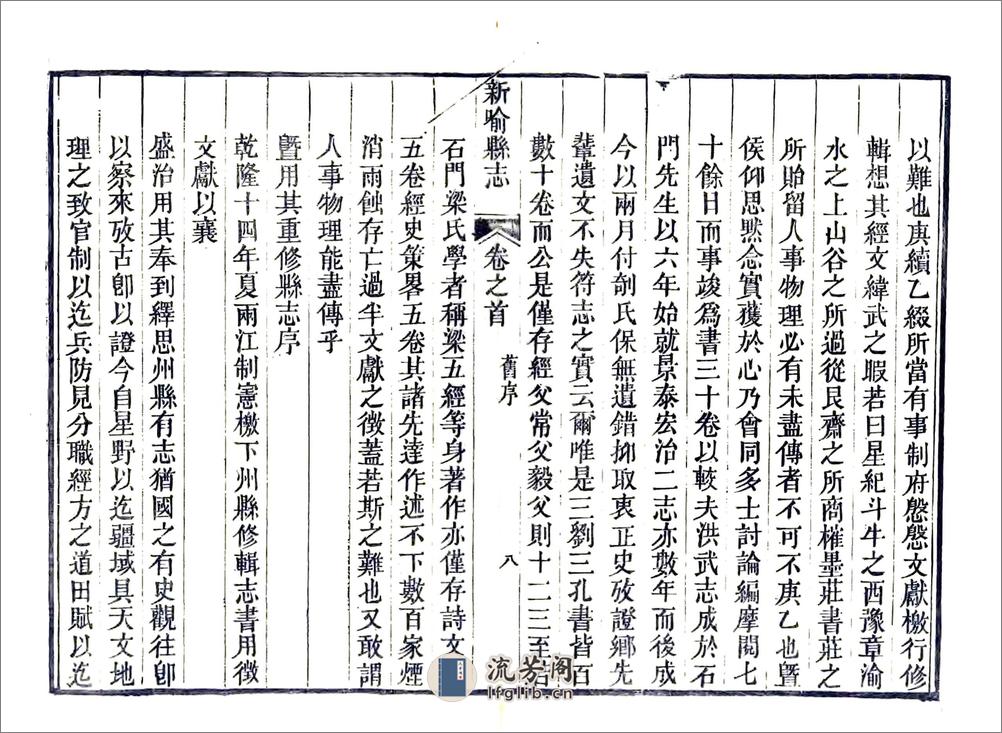 以難也庚續乙綴所當有事制府慇慇文獻檄行修
輯想其經文緯武之暇若曰星紀斗牛之西豫章渝
水之上山谷之所過從艮齋之所商榷墨莊書莊之
所貽留人事物理必有未盡傳者不可不庚乙也暨
侯仰思黙念實獲於心乃會同多士討論編摩閱七
十餘日而事竣爲書三十卷以較夫洪武志成於石
門先生以六年始就景泰宏治二志亦數年而後成
今以兩月付剞氏保無遺錯抑取衷正史攷證鄉先
輩遺文不失符志之實云爾唯是三劉三孔書皆百
數十卷而公是僅存經父常父毅父則十二三至若
新喻縣志 卷之首 舊序 八
石門梁氏學者稱梁五經等身著作亦僅存詩文
五卷經史策畧五卷其諸先達作述不下數百家煙
消雨蝕存亡過半文獻之徵蓋若斯之難也又敢謂
人事物理能盡傳乎
暨用其重修縣志序
乾隆十四年夏兩江制憲檄下州縣修輯志書用徵
文獻以襄
盛治用其奉到繹思州縣有志猶國之有史觀往卽
以察來攷古卽以證今自星野以迄疆域具天文地
理之致官制以迄兵防見分職經方之道田賦以迄
流芳阁
lfglib.cn